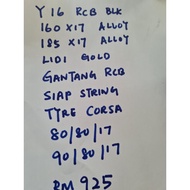 Y16 RCB BLK
160 X17 ALLOY
185 X17 ALLOY
LIDI GOLD
GANTANG RCB
SIAP STRING
TYRE CORSA
80/80/17
90/80/17
RM 925